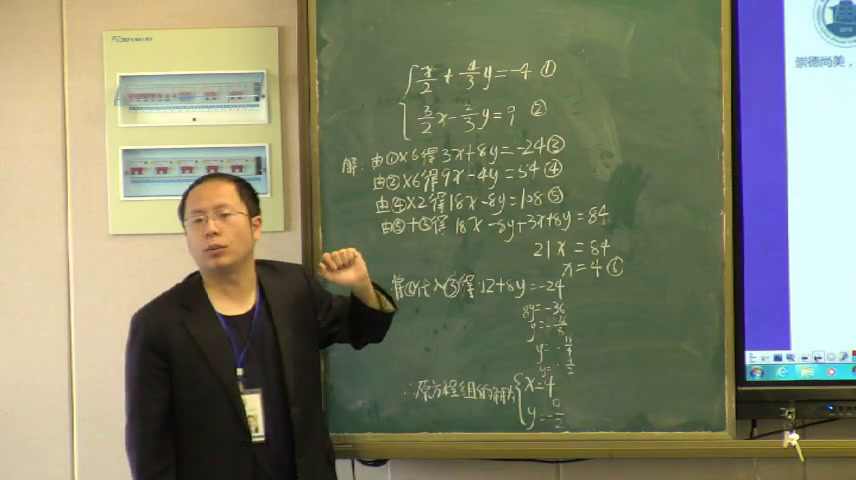 x/2 + 4/3 y = -4 ①
3/2 x - 2/3 y = 9 ②
解：由①×6得 3x+8y=-24 ③
由②×6得 9x-4y=54 ④
由④×2得 18x-8y=108 ⑤
由⑤+③得 18x-8y+3x+8y=84
21x=84
x=4 ⑥
将⑥代入③得 12+8y=-24
8y=-36
∴原方程组的解为 x=4
y=-9/2
崇德尚美，